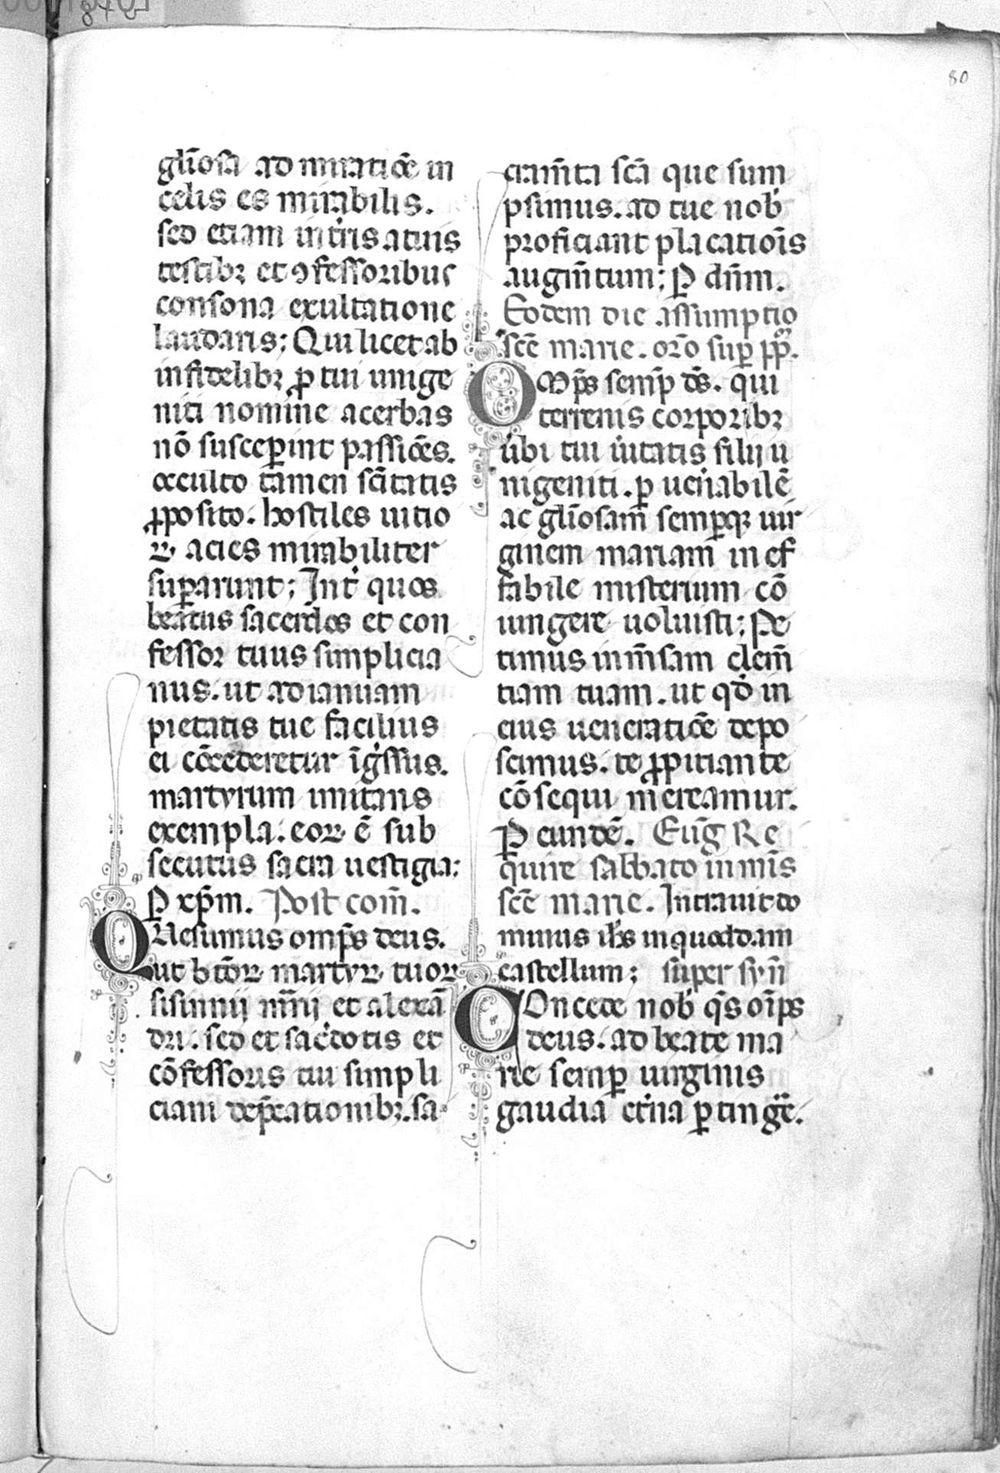 80
gl̄iosa ad miratiōe in
celis es mirabilis.
sed etiam in tr̄is a tuis
testibꝫ et ꝯfessoribus
consona exultatione
laudaris; Qui licet ab
infidelibꝫ ꝓ tui unige
niti nomine acerbas
nō susceꝑint passiōes.
occulto tamen sc̄itatis
ꝓposito. hostiles uitio
ꝝ. acies mirabiliter
suꝑarunt; Int̄ quos
beatus sacerdos et con
fessor tuus simplicia
nus. ut ad ianuam
pietatis tue facilius
ei cōcederetur īgr̄ssus.
martyrum imitatus
exempla. eoꝝ ē sub
secutus sacra uestigia;
P xp̄m. Post com̄.
QUaesumus omp̄s deus.
ut btōꝝ martyꝝ tuoꝝ
sisinnij mr̄ij et alexā
dri. sed et sac̄dotis et
cōfessoris tui simpli
ciani dep̄cationibꝫ. sa
cram̄ta sc̄a que sum
psimus. ad tue nob̄
proficiant placatiōis
augm̄tum; P dn̄m.
Eodem die assumptio
sc̄e marie. or̄o suꝑ pp̄.
OMp̄s semꝑ ds̄. qui
terrenis corporibꝫ
ubi tui ūitatis filij u
nigeniti. ꝑ uen̄abilē
ac gl̄iosam semꝑqꝫ uir
ginem mariam inef
fabile misterium cō
iungere uoluisti; Pe
timus inm̄sam clem̄
tiam tuam. ut qd̄ in
eius ueneratiōe depo
scimus. te ꝓpitiante
cōsequi mereamur.
P eundē. Euḡ Re
quire sabbato in mīs
sc̄e marie. Intrauit do
minus ih̄s in quoddam
castellum; super sy̅n̅
COncede nob̄ qs̄ om̄ps
deus. ad beate ma
rie semꝑ uirginis
gaudia et̄na ꝑtinḡe.